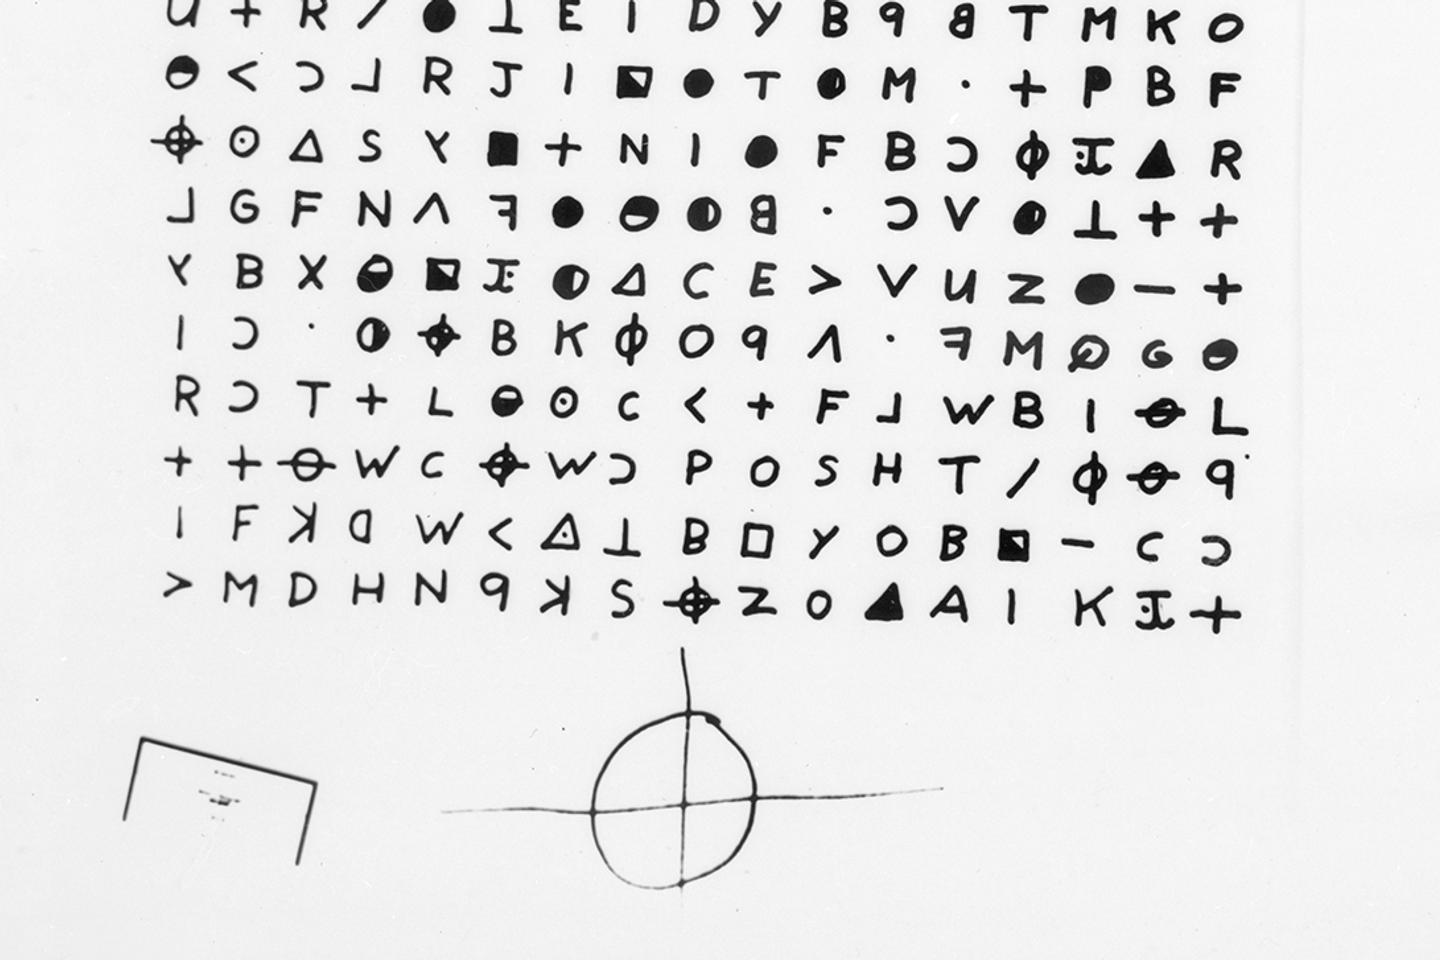 U + R / ● ⊥ E I D Y B 9 ᗺ T M K O
◓ < Ɔ ⅃ R J I ◪ ● T ◐ M · + P B F
⌖ ⊙ △ S ⅄ ■ + N I ● F B Ɔ ⏀ I ▲ R
⅃ G F N Λ ꟻ ● ◒ ◑ ᗺ · Ɔ V ◐ ⊥ + +
⅄ B X ◓ ◪ I ◐ △ C E > V U Z ● — +
I Ɔ · ◐ ⌖ B K ⏀ O 9 Λ · ꟻ M G ◒
R Ɔ T + L ◒ ⊙ C < + F ⅃ W B I ⊖ L
+ + ⊖ W C ⌖ W Ɔ P O S H T / ⏀ ⊖ 9
I F ꓘ ᗡ W < ◬ ⊥ B □ Y O B ◪ — C Ɔ
> M D H N 9 ꓘ S ⌖ Z O ▲ A I K I +